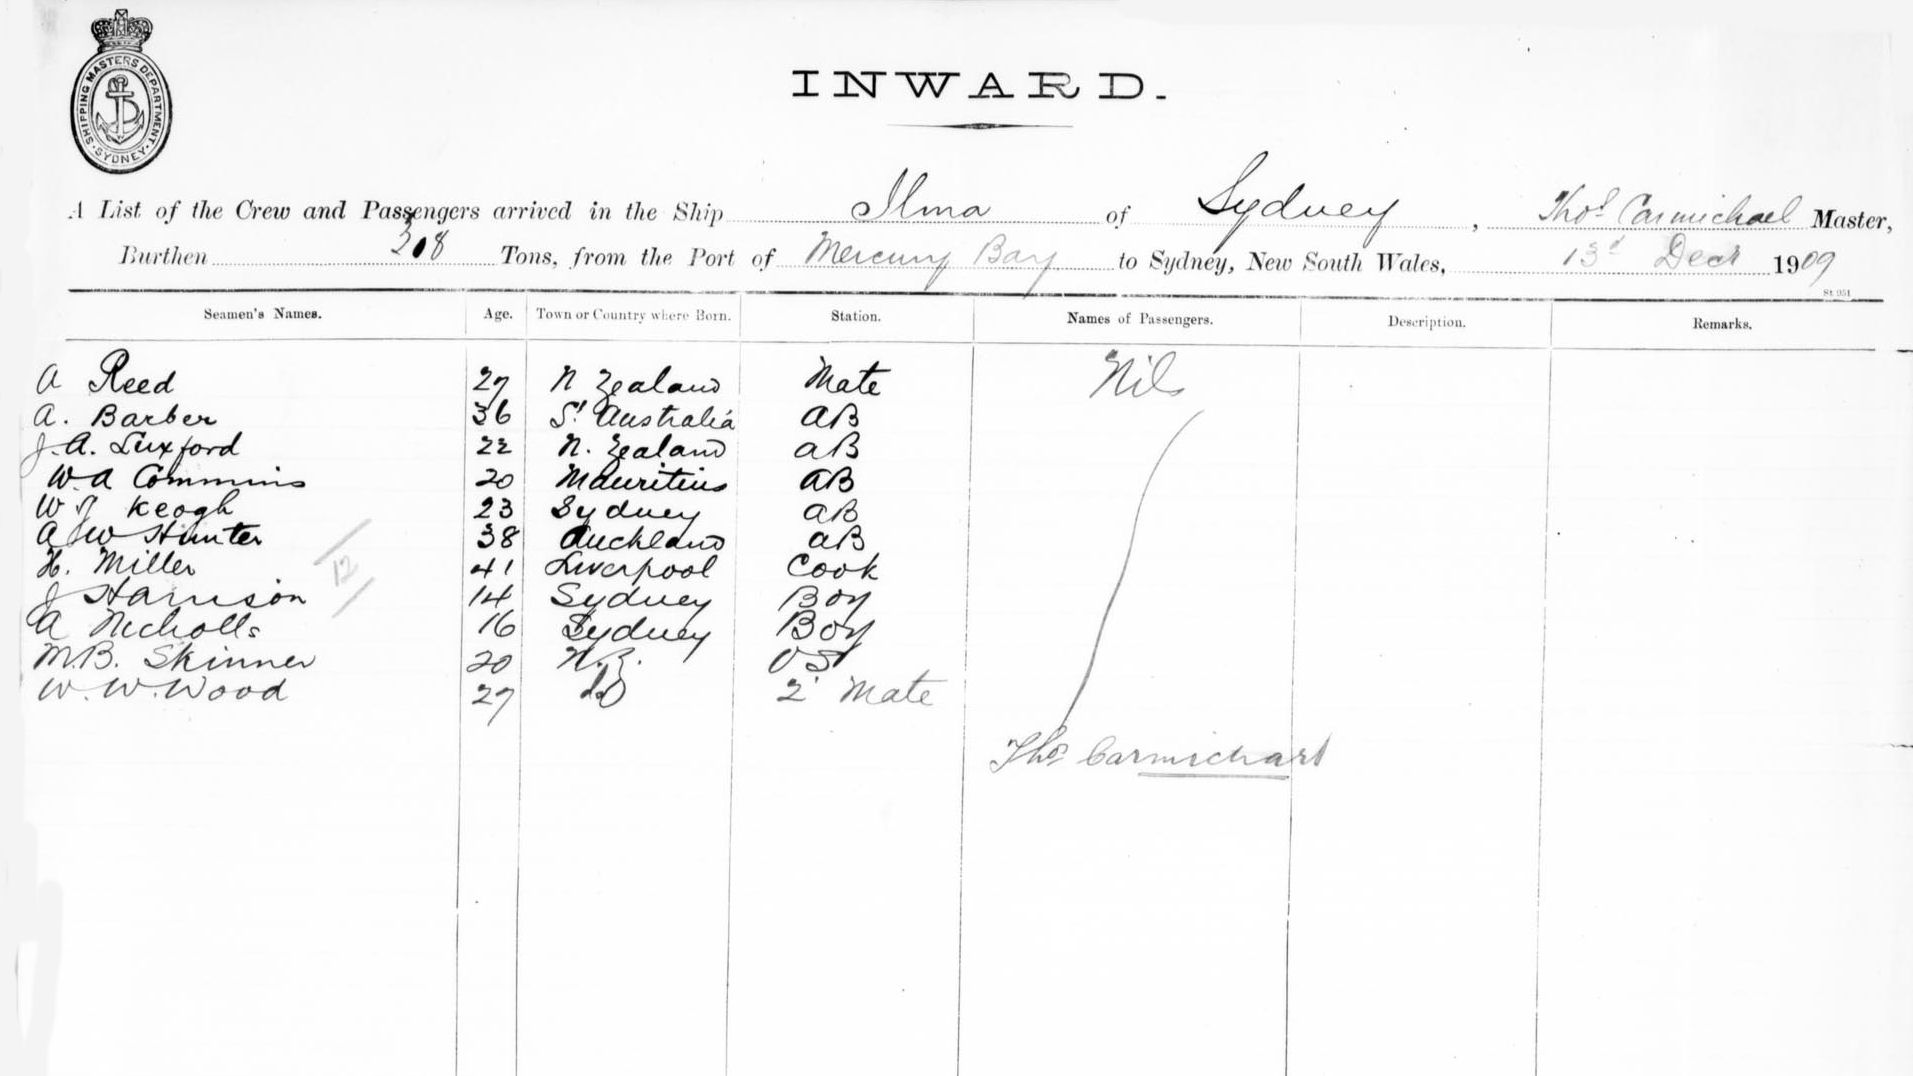 SHIPPING MASTERS DEPARTMENT. SYDNEY
INWARD.
A List of the Crew and Passengers arrived in the Ship Ilma of Sydney, Thos Carmichael Master,
Burthen 308 Tons, from the Port of Mercury Bay to Sydney, New South Wales, 13d Decr 1909
St. 951
Seamen's Names. Age. Town or Country where Born. Station. Names of Passengers. Description. Remarks.
A Reed 27 N Zealand Mate Nil
A. Barber 36 St Australia AB
J. A. Luxford 22 N. Zealand AB
W. A Commins 20 Mauritius AB
W J Keogh 23 Sydney AB
A W Hunter 38 Auckland AB
H. Miller 41 Liverpool Cook
12
J Harrison 14 Sydney Boy
A Nicholls 16 Sydney Boy
M.B. Skinner 20 N.Z. OS
W. W. Wood 27 do 2 Mate
Thos Carmichael